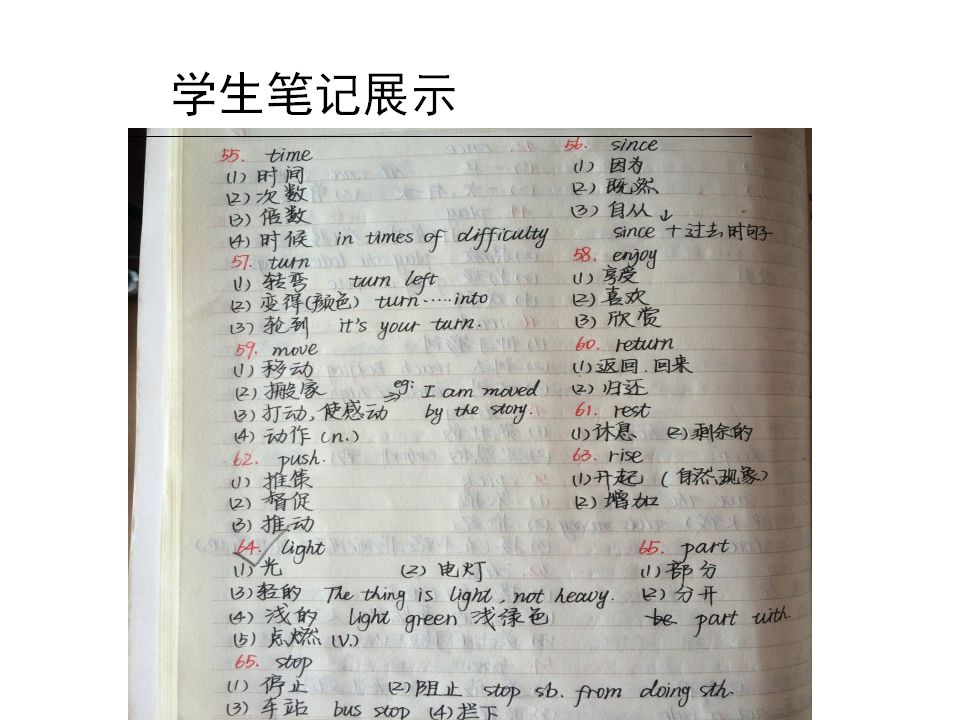 学生笔记展示
55. time
(1) 时间
(2) 次数
(3) 倍数
(4) 时候 in times of difficulty
56. since
(1) 因为
(2) 既然
(3) 自从
since + 过去时句子
57. turn
(1) 转弯 turn left
(2) 变得(颜色) turn……into
(3) 轮到 it's your turn.
58. enjoy
(1) 享受
(2) 喜欢
(3) 欣赏
59. move
(1) 移动
(2) 搬家
(3) 打动, 使感动 eg: I am moved
by the story.
(4) 动作 (n.)
60. return
(1) 返回. 回来
(2) 归还
61. rest
(1) 休息 (2) 剩余的
62. push.
(1) 推
(2) 督促
(3) 推动
63. rise
(1) 升起 (自然现象)
(2) 增加
64. light
(1) 光 (2) 电灯
(3) 轻的 The thing is light, not heavy.
(4) 浅的 light green 浅绿色
(5) 点燃 (V.)
65. part
(1) 部分
(2) 分开
be part with.
65. stop
(1) 停止 (2) 阻止 stop sb. from doing sth.
(3) 车站 bus stop (4) 拦下